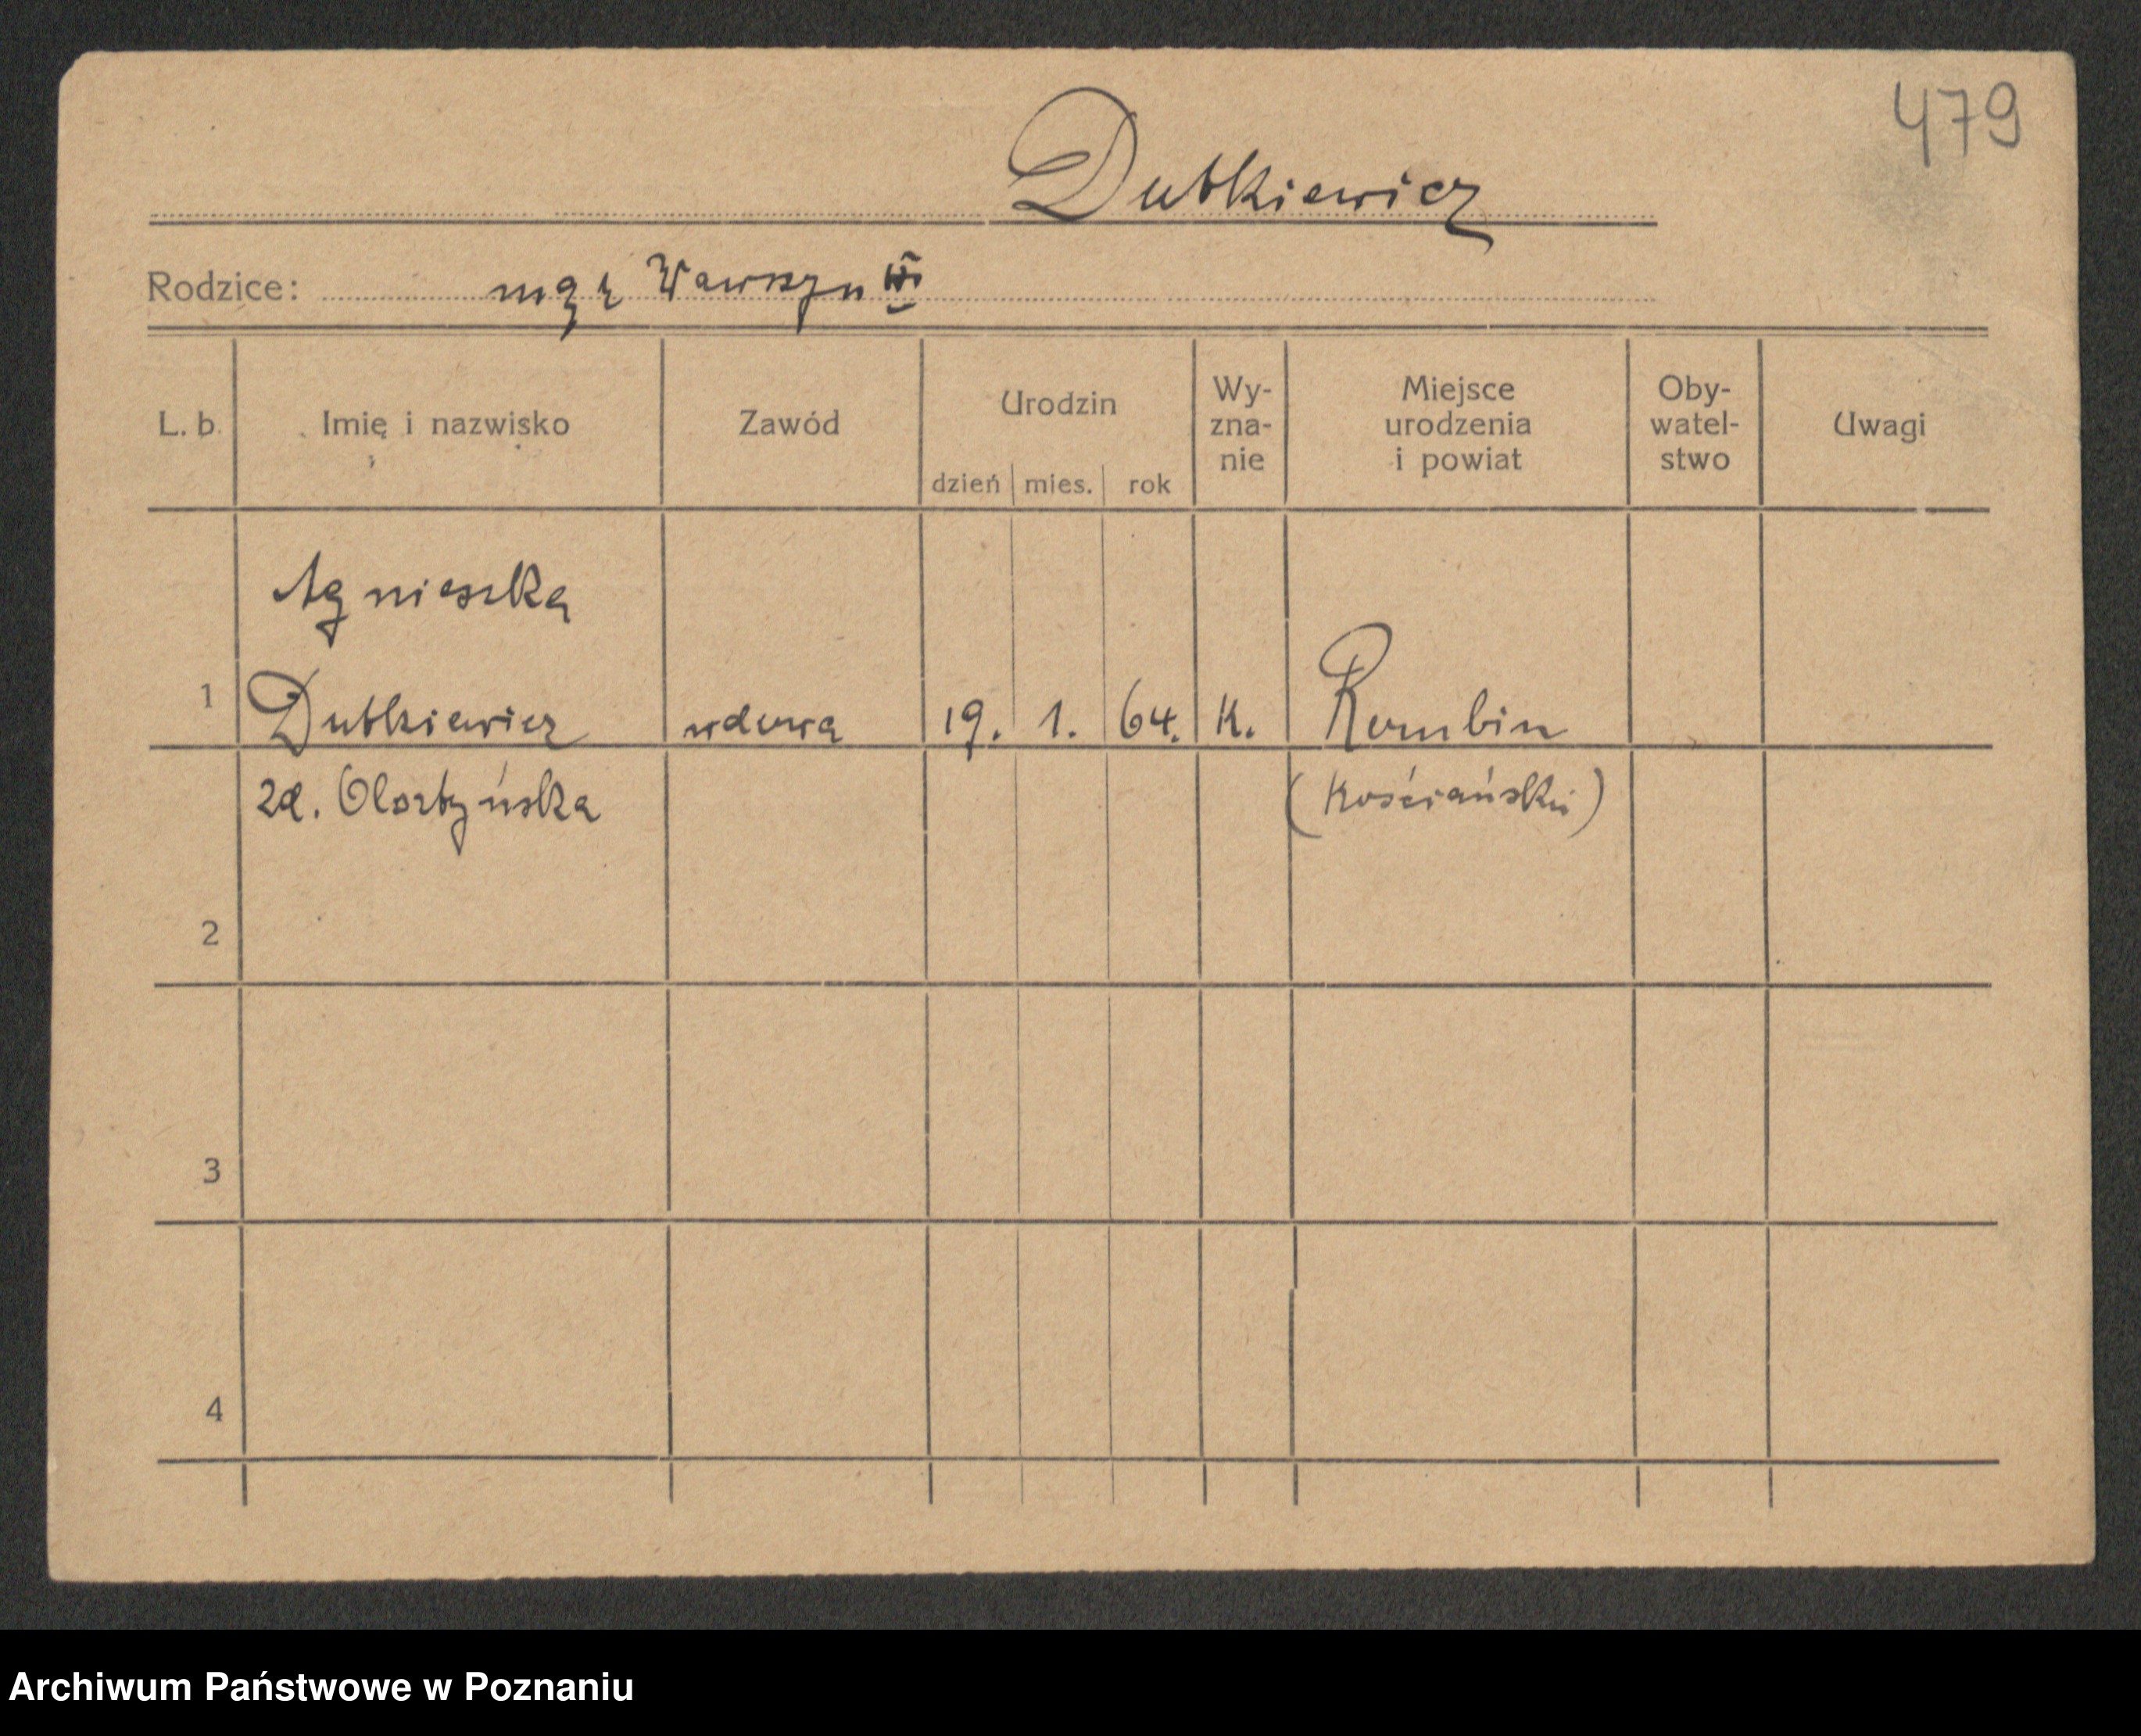 479
Dutkiewicz
Rodzice: mąż Wawrzyn
L. b. Imię i nazwisko Zawód Urodzin dzień mies. rok Wy-zna-nie Miejsce urodzenia i powiat Oby-watel-stwo Uwagi
Agnieszka
1 Dutkiewicz wdowa 19. 1. 64. K. Rombin
zd. Olsztyńska (Kościański)
2
3
4
Archiwum Państwowe w Poznaniu